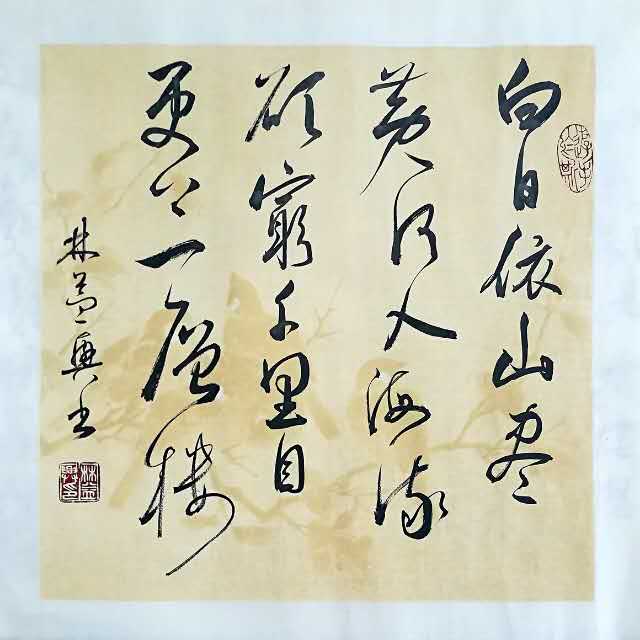 白日依山尽
黄河入海流
欲窮千里目
更上一層楼
林興书